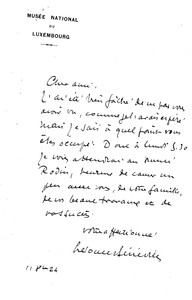 MUSÉE NATIONAL
DU
LUXEMBOURG
Cher ami,
J'ai été très fâché de ne pas vous
avoir vu, comme je l'avais espéré
mais je sais à quel point vous
êtes occupé. Donc à lundi 5.30
je vous attendrai au musée
Rodin, heureux de causer un
peu avec vous, de votre famille,
de vos beaux travaux et de
vos succès.
votre affectionné
Léonce Bénédite